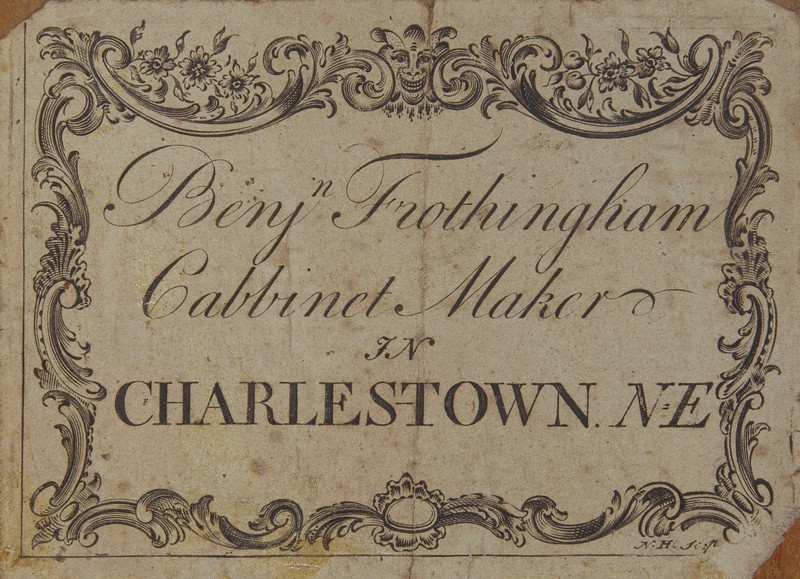 Benjⁿ Frothingham
Cabbinet Maker
IN
CHARLES-TOWN. N:E
N.H. Sculp